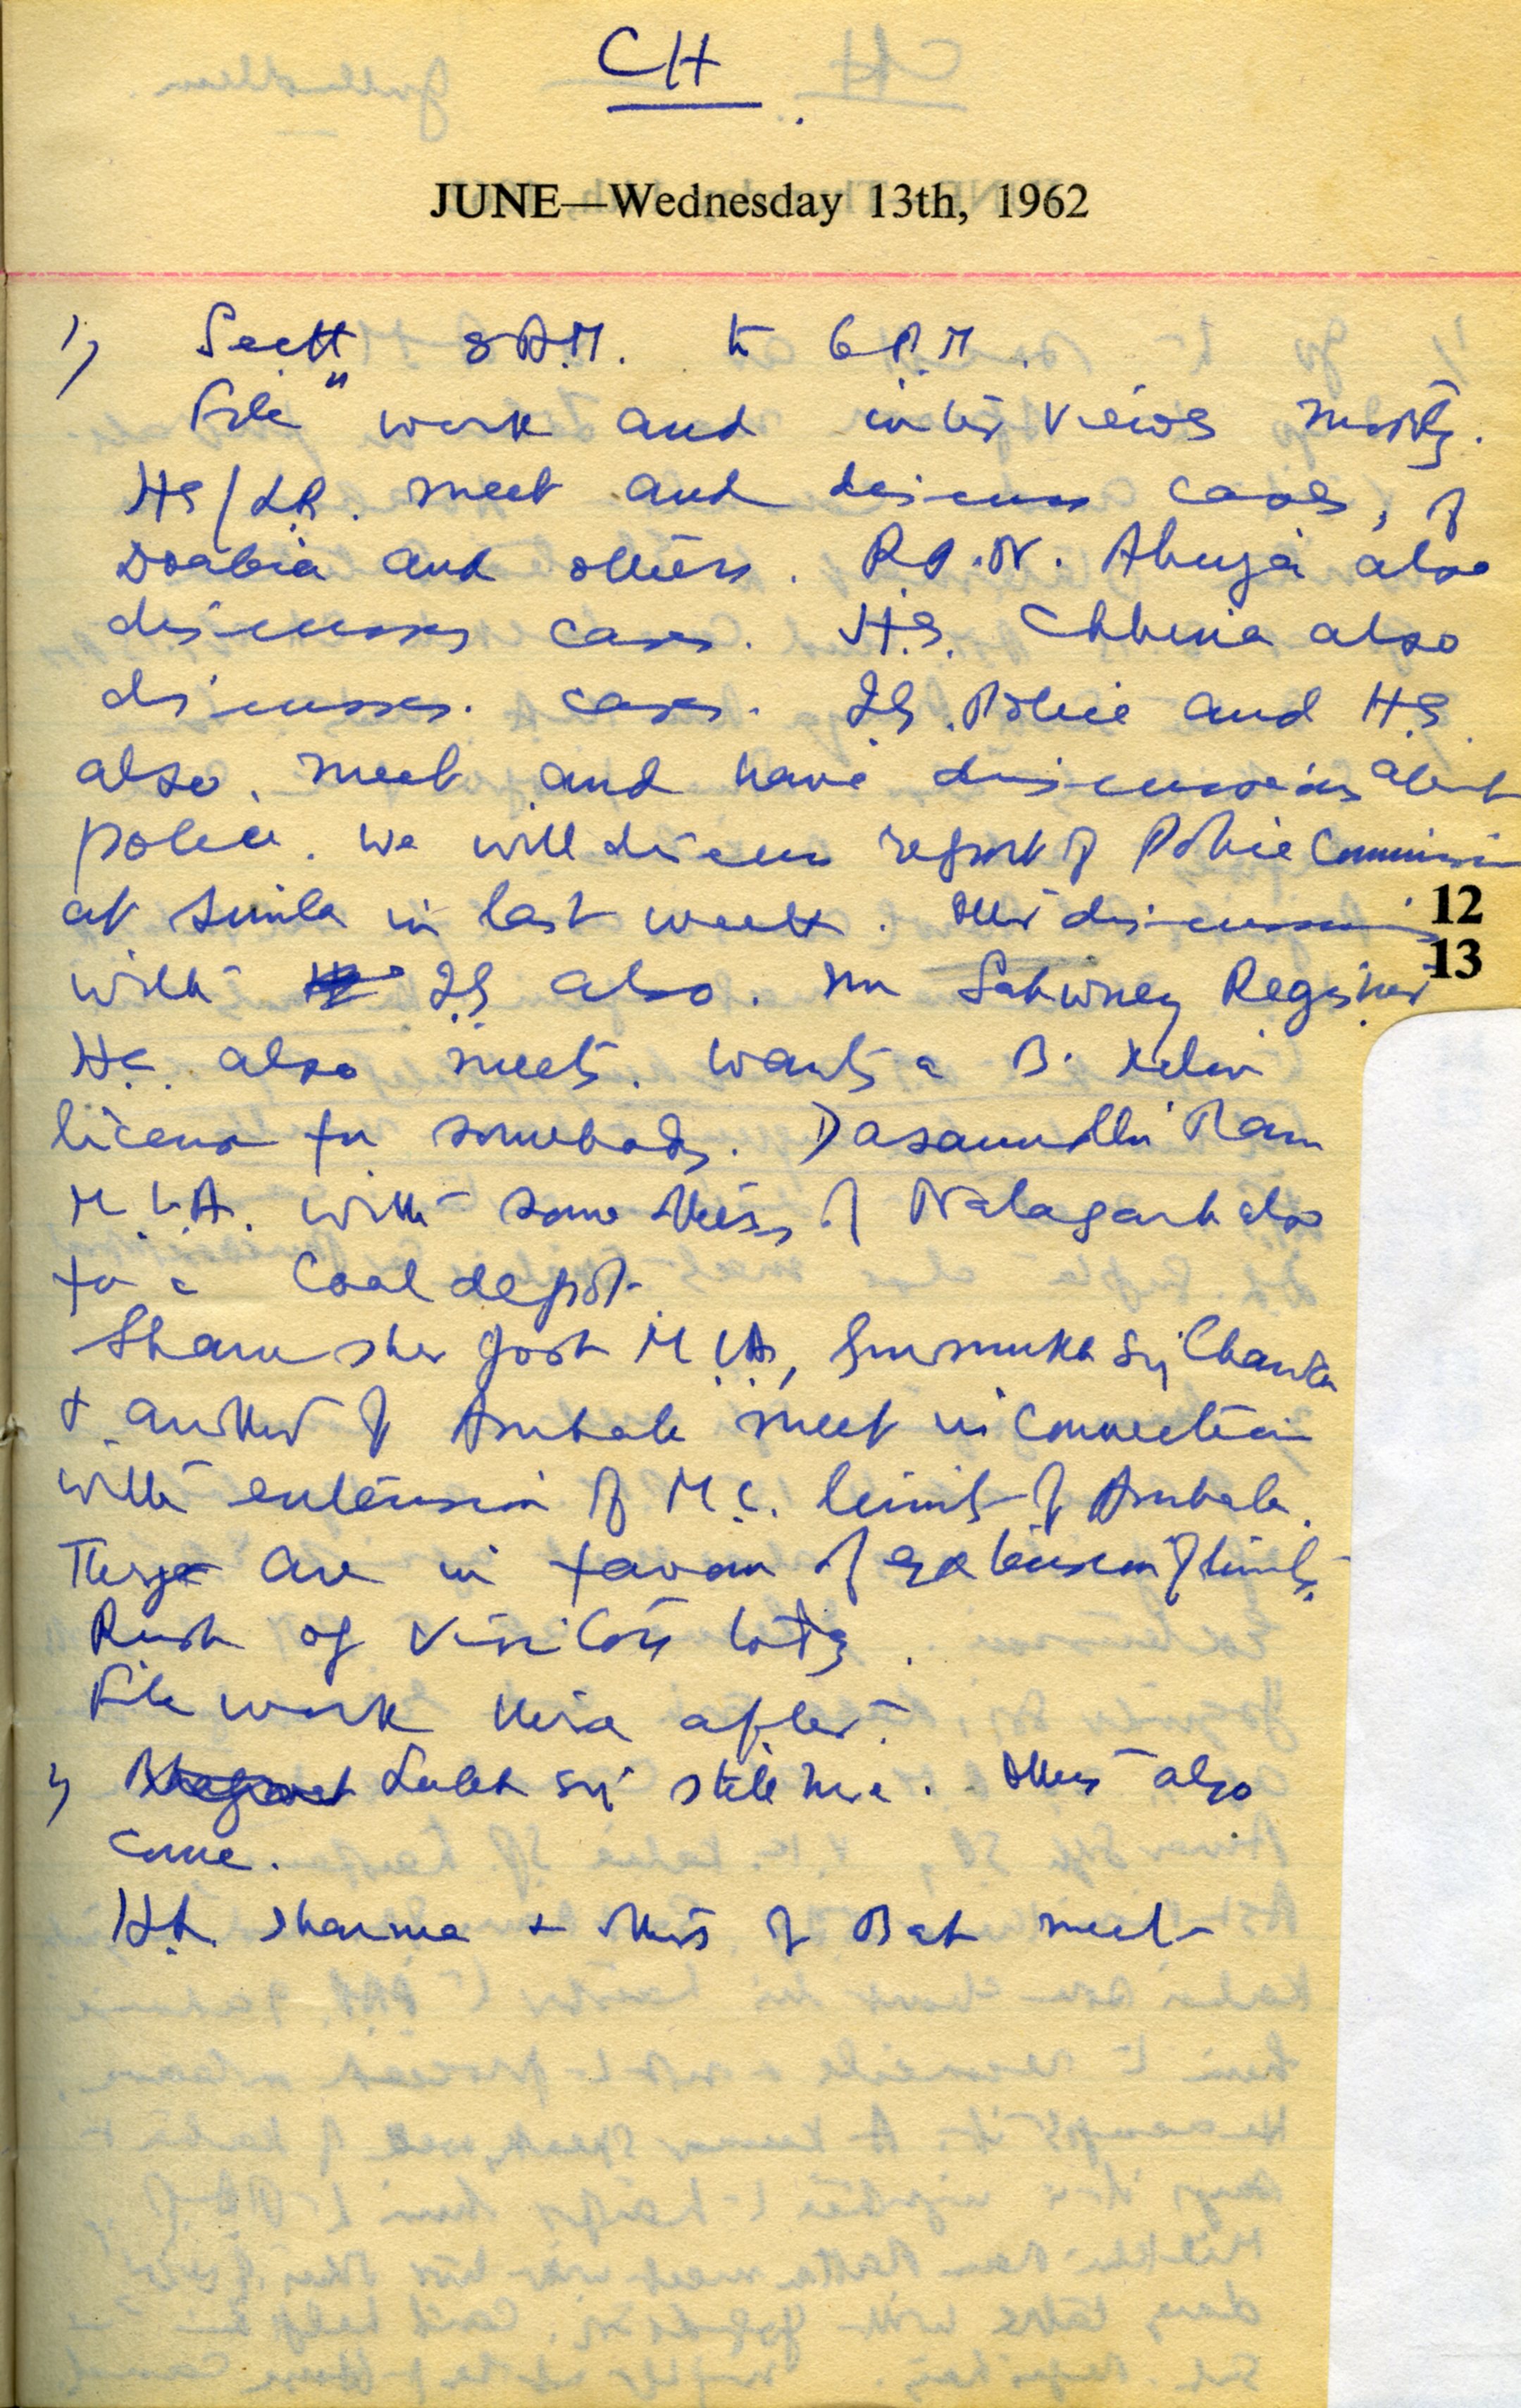 CH
JUNE—Wednesday 13th, 1962
1) Sectt 8 A.M. to 6 P.M.
File work and interviews mostly.
HS/LR. meet and discuss cases, of
Doabia and others. R.P.N. Ahuja also
discusses cases. H.S. Chhina also
discusses cases. I.G. Police and H.S.
also meet and have discussions about
police. We will discuss report of Police Commission
at Simla in last week. Other discussions
12
with IG also. Mr Sahwney Registrar
13
H.C. also meets. Wants a B. Kiln
licence for somebody. Dasaundhi Ram
M.L.A. with some others of Nalagarh also
for a Coal depot.
Shamsher Josh M.L.A., Gurmukh Si
& another of Ambala meet in connection
with extension of M.C. limits of Ambala.
They are in favour of extension of limits.
Rush of visitors lately.
File work there after.
2) Labh Si still here. Others also
come.
H.L. Sharma & others of Bat meet